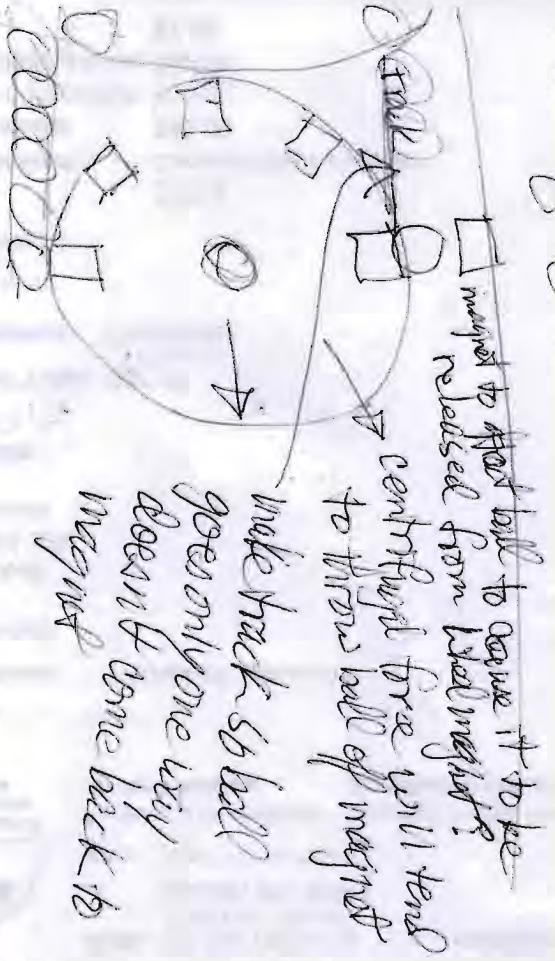 track
magnet to attract ball to cause it to be
released from wheel magnet?
centrifugal force will tend
to throw ball off magnet
make track so ball
goes only one way
doesn't come back to
magnet